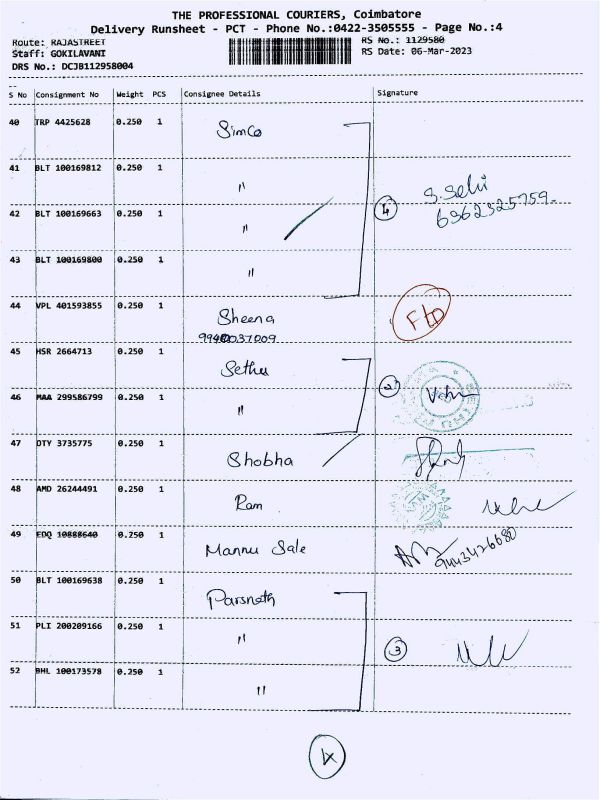 THE PROFESSIONAL COURIERS, Coimbatore
Delivery Runsheet - PCT - Phone No.:0422-3505555 - Page No.:4
Route: RAJASTREET
RS No.: 1129580
Staff: GOKILAVANI
RS Date: 06-Mar-2023
DRS No.: DCJB112958004
S No Consignment No Weight PCS Consignee Details Signature
40 TRP 4425628 0.250 1 Simco
41 BLT 100169812 0.250 1 "
④ S.Selvi
42 BLT 100169663 0.250 1 "
43 BLT 100169800 0.250 1 "
44 VPL 401593855 0.250 1 Sheena
45 HSR 2664713 0.250 1 Sethu
46 MAA 299586799 0.250 1 " ②
47 DTY 3735775 0.250 1 Shobha
48 AMD 26244491 0.250 1 Ram
49 EDQ 10888640 0.250 1 Mannu Sale
9443426680
50 BLT 100169638 0.250 1 Parsnath
51 PLI 200209166 0.250 1 " ③
52 BHL 100173578 0.250 1 "